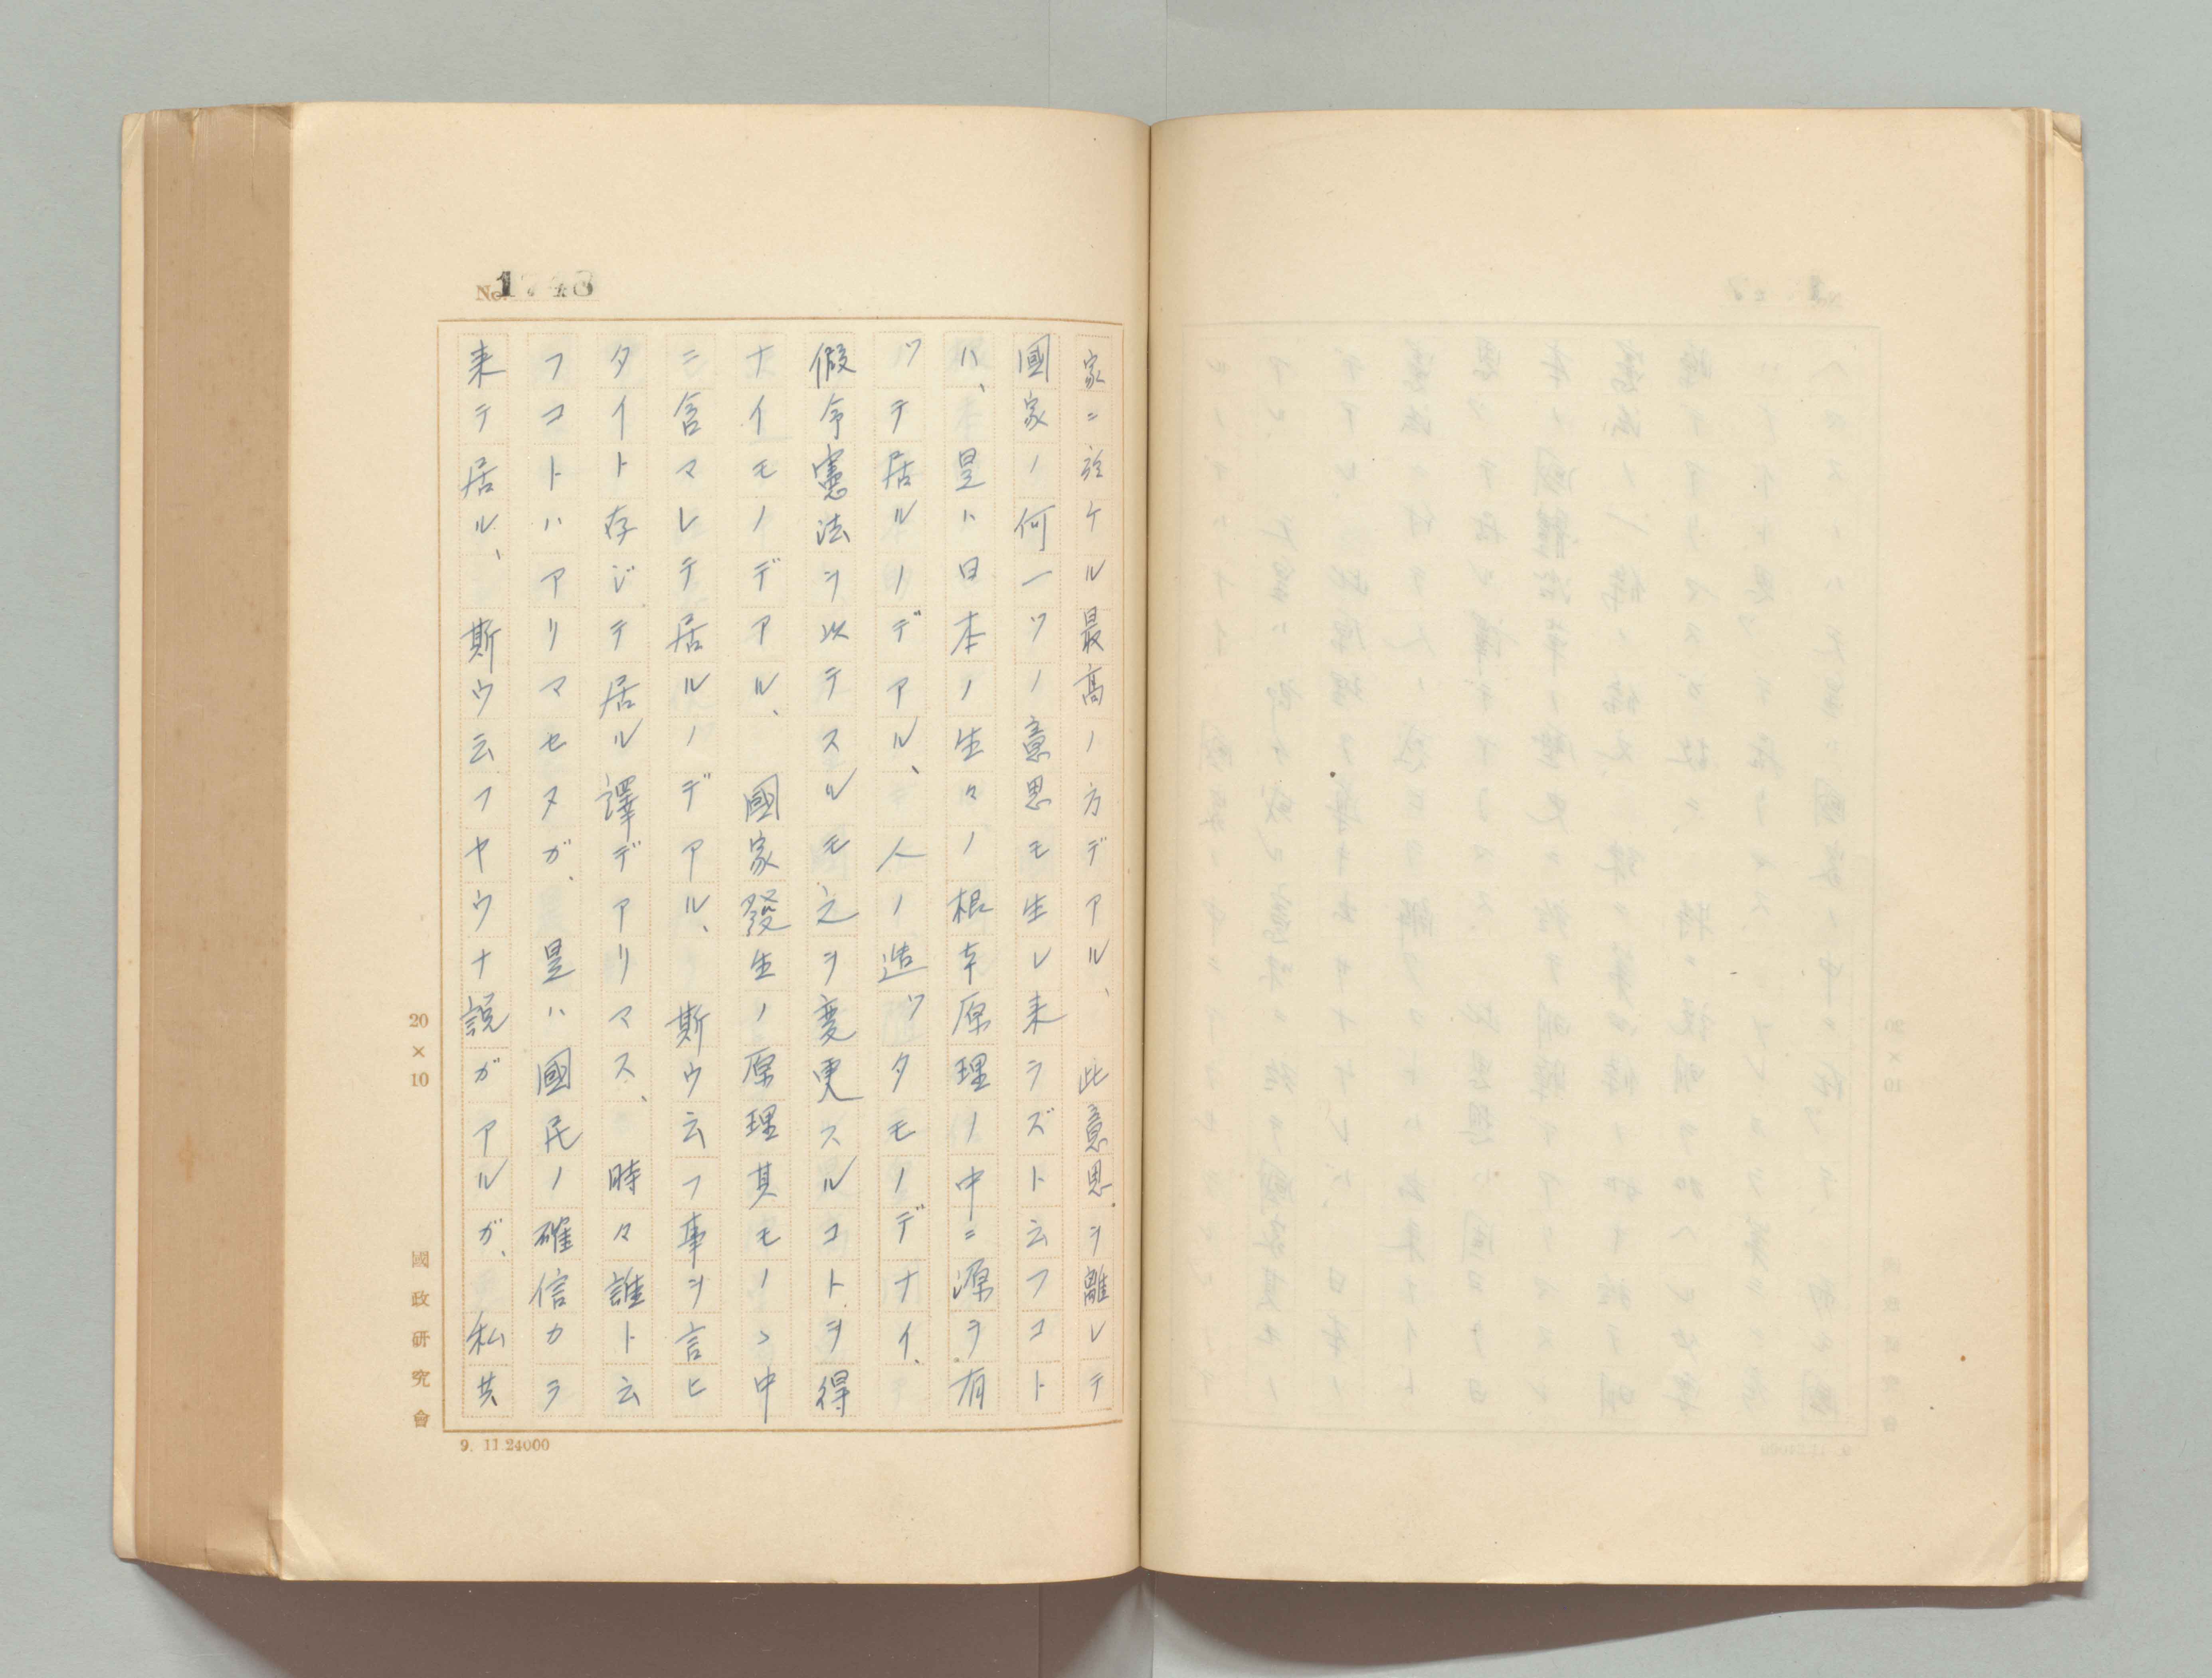 No. 1748
家ニ於ケル最高ノ方デアル、此意思ヲ離レテ
國家ノ何一ツノ意思モ生レ来ラズト云フコト
ハ、是ハ日本ノ生々ノ根本原理ノ中ニ源ヲ有
ツテ居ルノデアル、人ノ造ツタモノデナイ、
假令憲法ヲ以テスルモ之ヲ変更スルコトヲ得
ナイモノデアル、國家發生ノ原理其モノヽ中
ニ含マレテ居ルノデアル、斯ウ云フ事ヲ言ヒ
タイト存ジテ居ル譯デアリマス、時々誰ト云
フコトハアリマセヌガ、是ハ國民ノ確信カラ
来テ居ル、斯ウ云フヤウナ説ガアルガ、私共
20×10
國政研究會
9. 11 24000